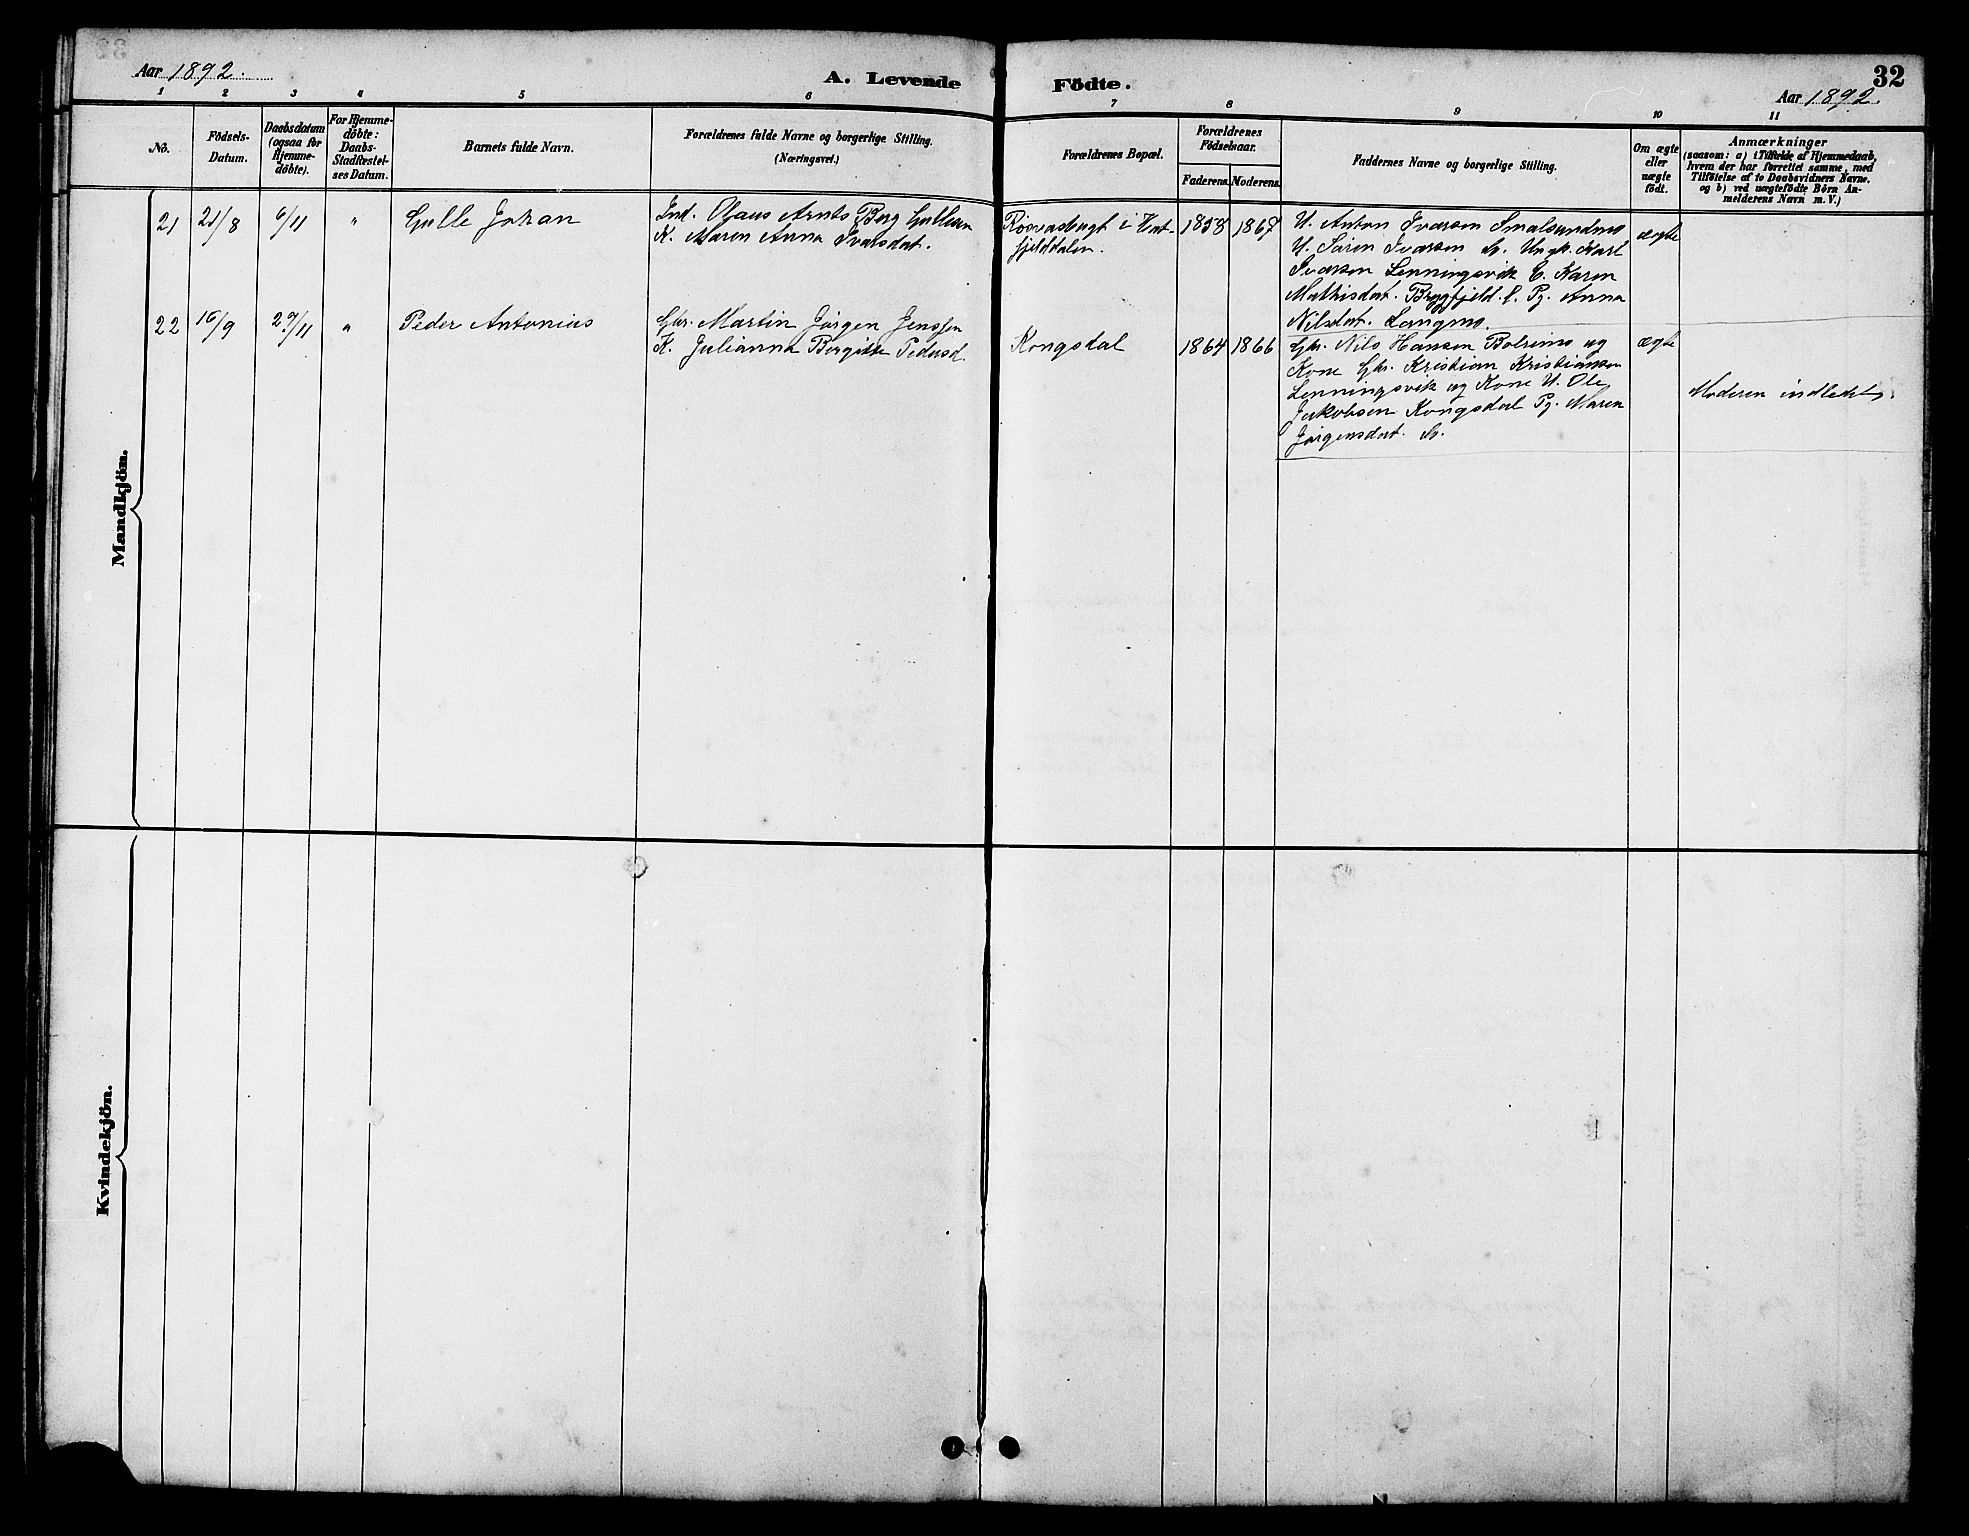 Aar 1892.
A. Levende
Födte.
32
Aar 1892.
1 2 3 4 5 6 7 8 9 10 11
No.
Födsels-
Datum.
Daabsdatum
(ogsaa for
Hjemme-
döbte).
For Hjemme-
döbte:
Daabs-
Stadfæstel-
ses Datum.
Barnets fulde Navn.
Forældrenes fulde Navne og borgerlige Stilling.
(Næringsvei.)
Forældrenes Bopæl.
Forældrenes
Födselsaar.
Faderens. Moderens.
Faddernes Navne og borgerlige Stilling.
Om ægte
eller
uægte
födt.
Anmærkninger
(saasom: a) i Tilfælde af Hjemmedaab,
hvem der har forrettet samme, med
Tilföielse af to Daabsvidners Navne.
og b) ved uægtefödte Börn An-
melderens Navn m. V.)
Mandkjön.
21 21/8 6/11 " Gulle Johan
Ind. Olaus Arnts Berg Gullesen
K. Maren Anna Ivarsdat.
Røsvasbugt i Hat-
fjelddalen.
1858 1867
U. Anton Ivarsen Smalsundmo
U. Sören Ivarsen S. Ungk. Karl
Ivarsen Lenningsvik E. Karen
Mathisdat. Bryggfjeld. l. Pg. Anna
Nilsdat. Langmo.
ægte
22 16/9 29/11 " Peder Antonius
Gbr. Martin Jörgen Jenssen
K. Julianna Bergitte Pedersd.
Kongsdal
1864 1866
Gbr. Nils Hansen Bolermo og
Kone Gbr. Kristian Kristiansen
Lenningsvik og Kone U. Ole
Jakobsen Kongsdal Pg. Maren
Jörgensdat. S.
ægte
Moderen indledet
Kvindekjön.